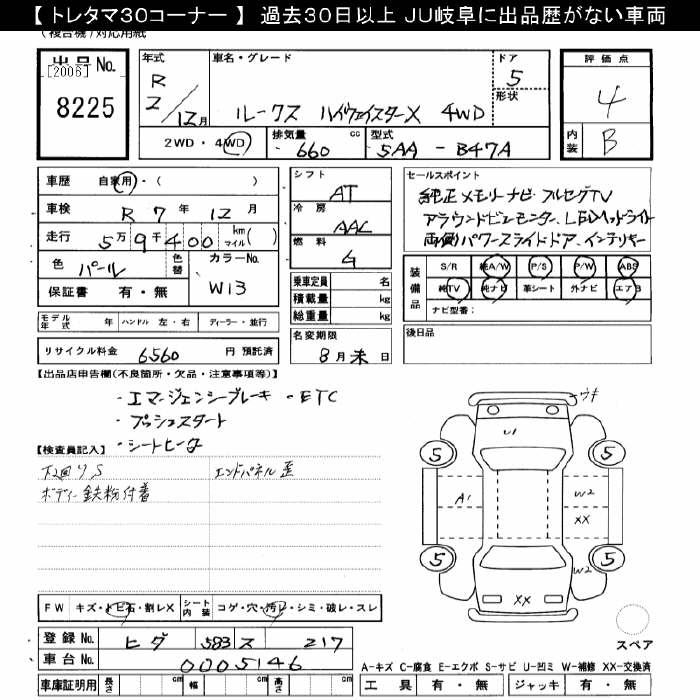 【 トレタマ30コーナー 】 過去30日以上 JU岐阜に出品歴がない車両
(複合機)対応用紙
出品No.
[2006]
8225
年式
R
2/12月
車名・グレード
ルークス ハイウェイスターX 4WD
ドア
5
形状
2WD・4WD
排気量 660 cc
型式 5AA - B47A
評価点
4
内装 B
車歴 自家用・( )
車検 R 7年 12月
走行 5万9千400 km マイル( )
色 パール
色替
カラーNo. W13
保証書 有・無
シフト AT
冷房 AAC
燃料 G
乗車定員 名
積載量 kg
総重量 kg
セールスポイント
純正メモリナビ フルセグTV
アラウンドビューモニター、LEDヘッドライト
両側パワースライドドア、インテリキー
装備品
S/R 純A/W P/S P/W ABS
純TV 純ナビ 革シート 外ナビ エアB
ナビ型番:
モデル年式 年 ハンドル 左・右 ディーラー・並行
名変期限
8月末日
後日品
リサイクル料金 6560 円 預託済
【出品店申告欄(不良箇所・欠品・注意事項等)】
・エマージェンシーブレーキ ・ETC
・プッシュスタート
・シートヒータ
【検査員記入】
下廻りS
エンドパネル歪
ボディー鉄粉付着
ウキ
U1
5 5
A1
W2
XX
5 5
W2
XX
スペア
FW キズ・トビ石・割レX
シート内装 コゲ・穴・汚レ・シミ・破レ・スレ
登録No. ヒダ 583 ス 217
車台No. 0005146
A-キズ C-腐食 E-エクボ S-サビ U-凹ミ W-補修 XX-交換済
車庫証明用 長さ cm 幅 cm 高さ cm
工具 有・無 ジャッキ 有・無